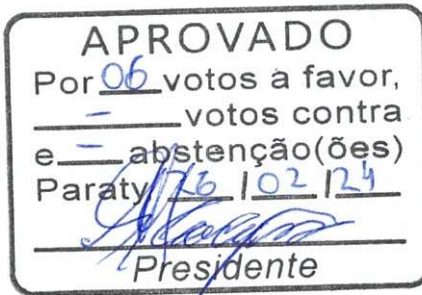 APROVADO
Por 06 votos a favor,
- votos contra
e - abstenção(ões)
Paraty 26 / 02 / 24
Presidente